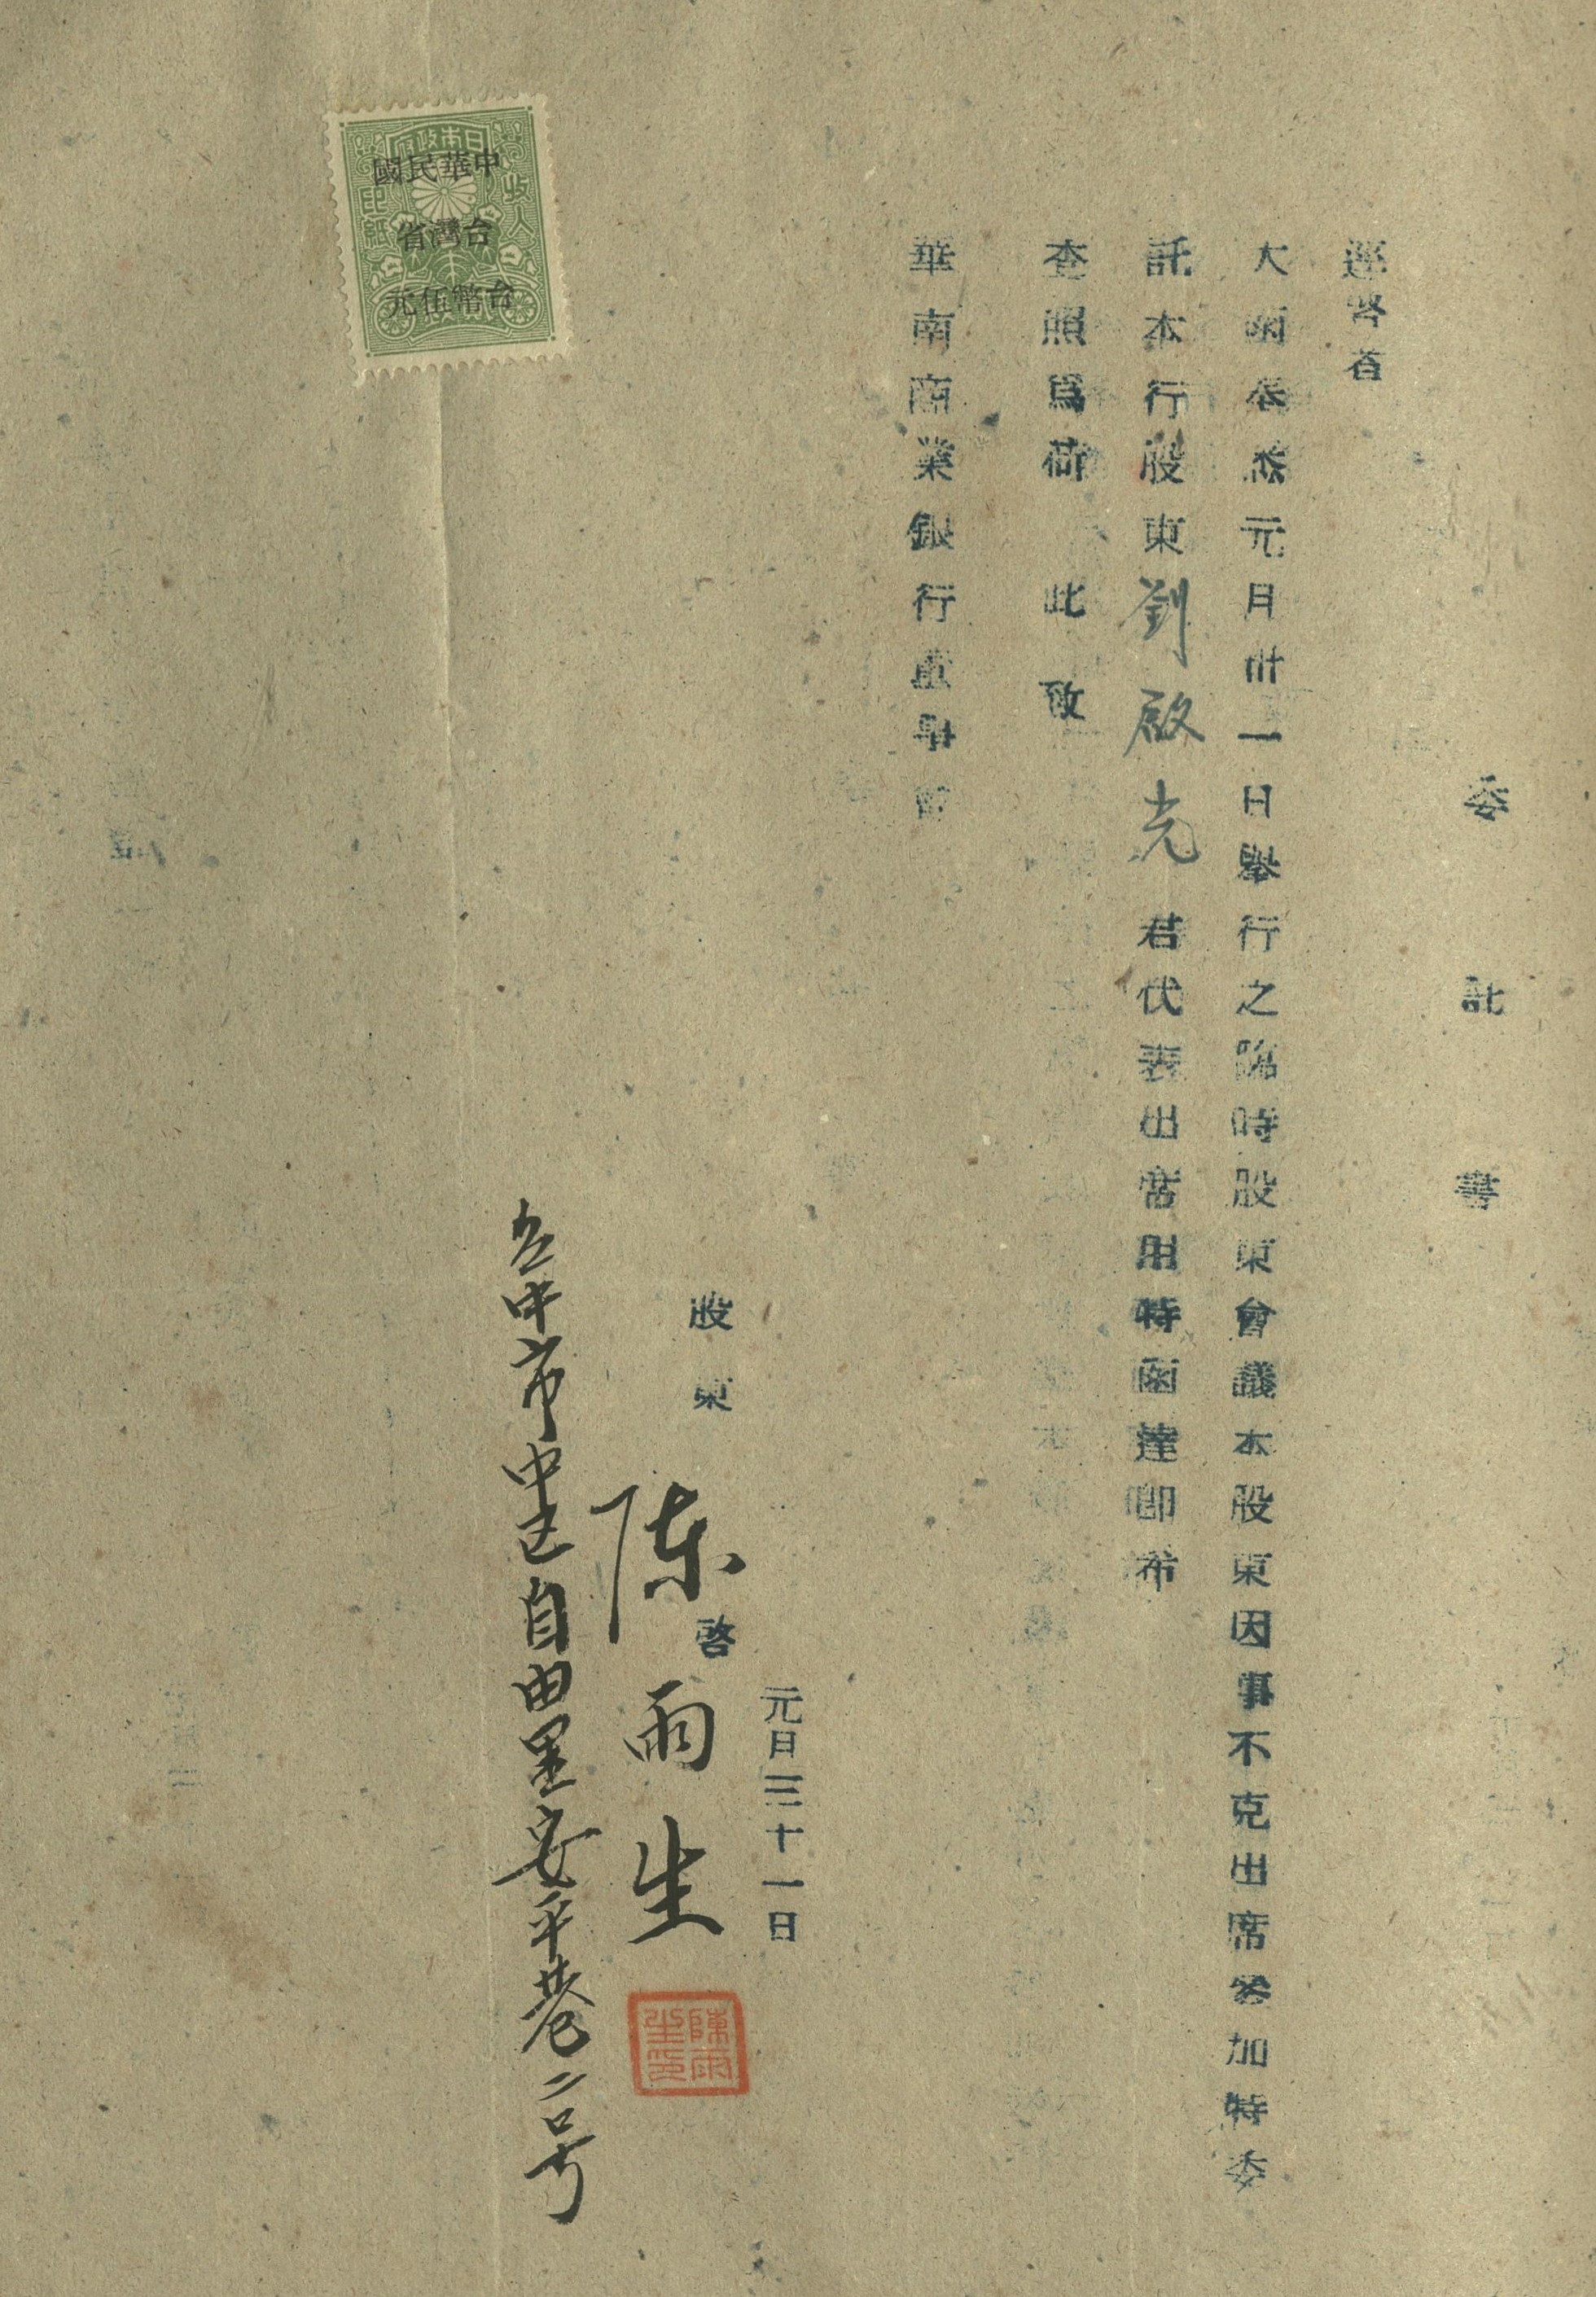 委託書
逕啓者
大函奉悉元月卅一日舉行之臨時股東會議本股東因事不克出席參加特委
託本行股東劉啟光君代表出席用特函達卽布
查照爲荷 此致
華南商業銀行董事會
元日三十一日
股東 啓
陳雨生
台中市中区自由里安平巷二号
陳雨生印
日本政府
收入印紙
中華民國
台灣省
台幣伍元